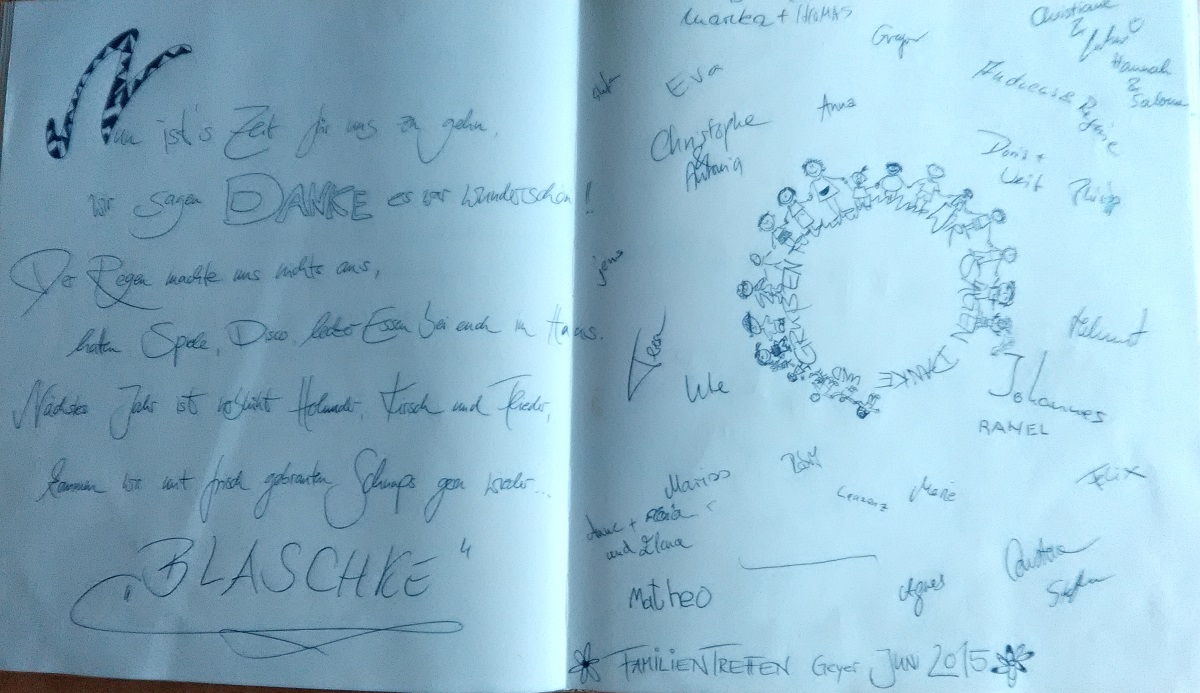 Nun ist's Zeit für uns zu gehn,
wir sagen DANKE es war wunderschön!
Der Regen machte uns nichts aus,
hatten Spiele, Disco, lecker Essen bei euch im Haus.
Nächstes Jahr ist verblüht Holunder, Kirsch und Flieder,
kommen wir mit frisch gebrannten Schnaps gern wieder...
"BLASCHKE"
Marika + THOMAS
Gregor
Christiane
&
Hannah
&
Salome
Eva
Andreas &
Anna
Christophe
&
Antonia
Doris +
Veit
jens
Helmut
Ute
DANKE
Johannes
RAHEL
Felix
Marie
und Elena
Matheo
Agnes
FAMILIENTREFFEN Geyer JUNI 2015